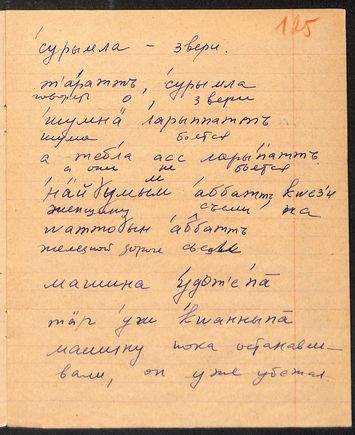 125
сурымла – звери.
тӓраттъ, сурымла
говорят о звери
шумнӓ ларыпаттъ
шума боятся
а тебла асс ларыпаттъ.
а они не боятся
найӷумым аббатт, квэзи
женщину съели, на
ваттобын аббатт
железной дороге съели
машина удотепа
тӓп уж кванныпа
машину пока останавли-
вали, он уже убежал.